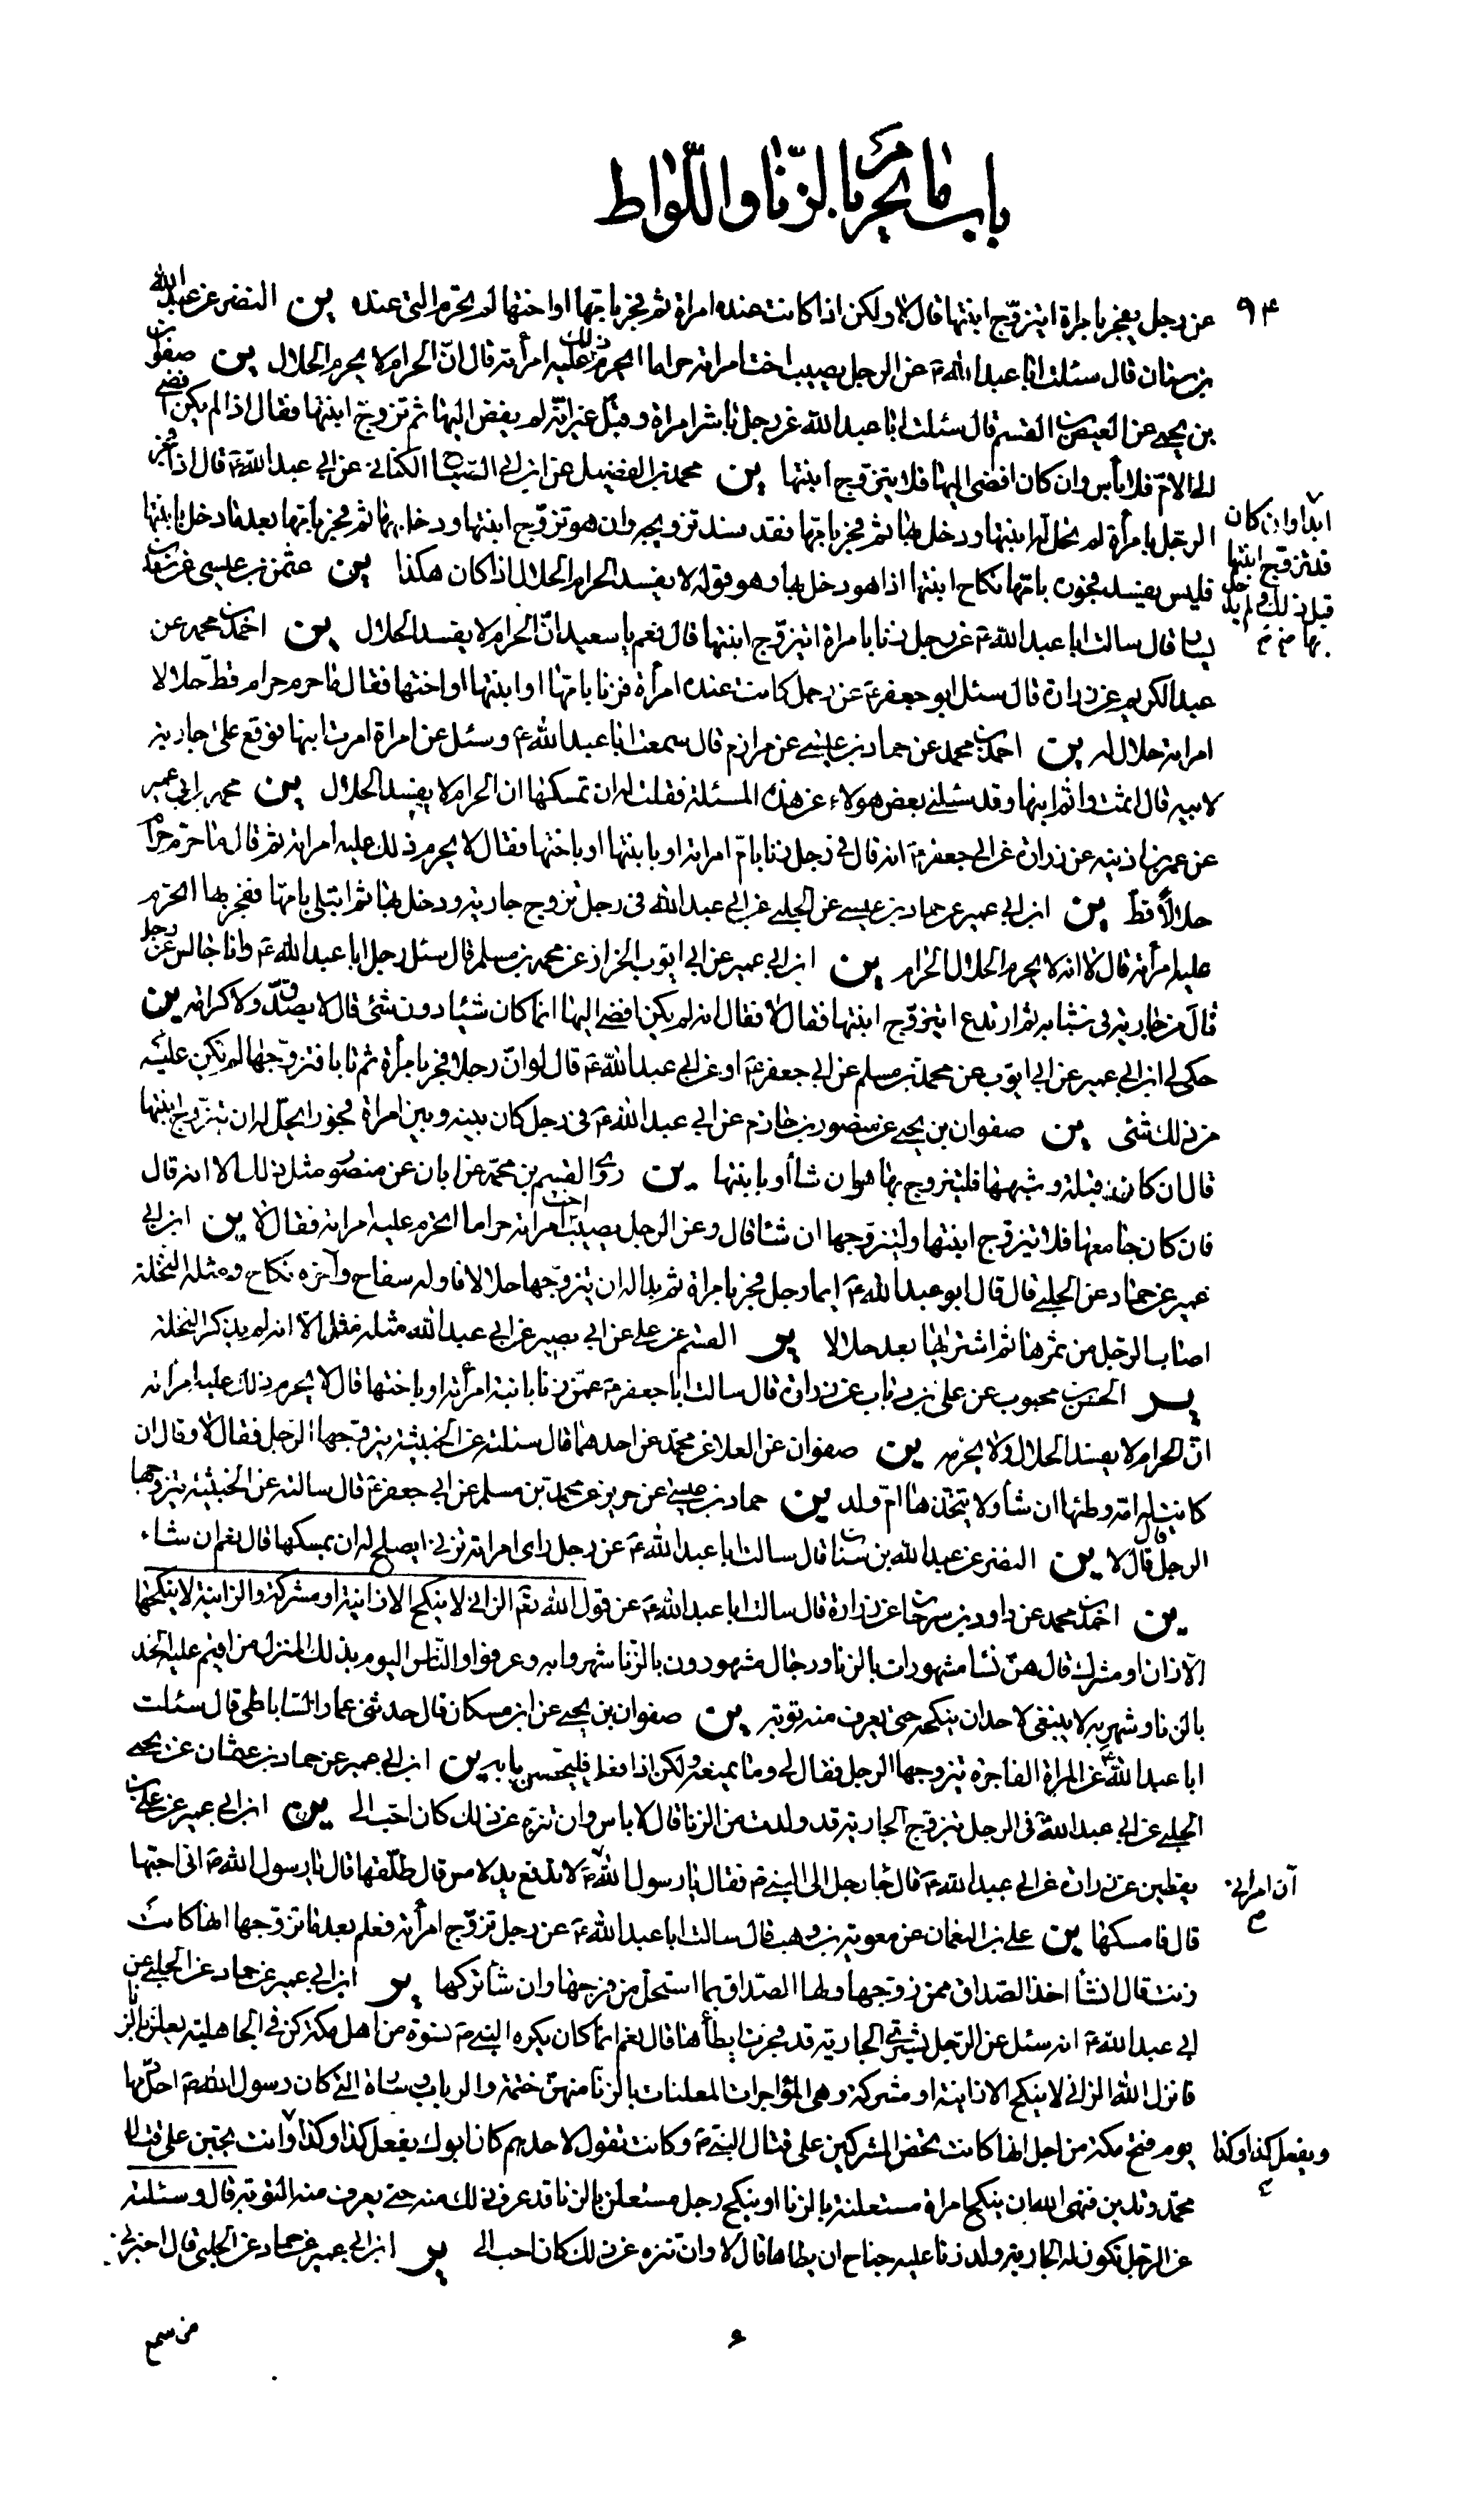 باب ما يحرم بالزنا واللواط
٩٤
عن رجل يفجر بامراة ايتزوّج ابنتها قال لا ولكن اذا كانت عنده امراة ثم فجر بامّها او اختها لم يحرم التى عنده ين النضر عن عبد الله
بن سنان قال سئلت ابا عبد الله ع عن الرجل يصيب اخت امراته حراما ايحرم ذلك عليه امرأته قال انّ الحرام لا يحرم الحلال ين صفوان
بن يحيى عن العيص بن القسم قال سئلت ابا عبد الله عن رجل باشر امراة وقبّل غير انّه لم يفض اليها ثم تزوّج ابنتها فقال اذا لم يكن افضى
الى الامّ فلا بأس وان كان افضى اليها فلا يتزوّج ابنتها ين محمد بن الفضيل عن ابى الصباح الكنانى عن ابى عبد الله ع قال اذا فجر
الرجل بامرأة لم تحل له ابنتها ودخل بها ثم فجر بامّها فقد فسد تزويجه وان هو تزوّج ابنتها ودخل بها ثم فجر بامّها بعد ما دخل بابنتها
ابدا وان كان
قد تزوج ابنتها
قبل ذلك ولم يدخل
بها
فليس يفسد فجوره بامّها نكاح ابنتها اذا هو دخل بها وهو قوله لا يفسد الحرام الحلال اذا كان هكذا ين عثمن بن عيسى عن سعيد بن
يسار قال سالت ابا عبد الله ع عن رجل زنا بامراة ايتزوّج ابنتها قال نعم يا سعيد انّ الحرام لا يفسد الحلال ين احمد بن محمد عن
عبد الكريم عن زرارة قال سئل ابو جعفر ع عن رجل كانت عنده امرأة فزنا بامّها او ابنتها او اختها فقال ما حرم حرام قطّ حلالا
امراته حلال له ين احمد بن محمد عن حماد بن عيسى عن مرازم قال سمعت ابا عبد الله ع وسئل عن امراة امرت ابنها فوقع على جارية
لابيه قال اثمت واثم ابنها وقد سئلنى بعض هولاء عن هذه المسئلة فقلت له ان تمسكها ان الحرام لا يفسد الحلال ين محمد بن ابى عمير
عن عمر بن اذينه عن زرارة عن ابى جعفر ع انه قال فى رجل زنا بامّ امراته او بابنتها او باختها فقال لا يحرم ذلك عليه امراته ثم قال ما حرّم حرام
حلالاً قط ين ابن ابى عمير عن حماد بن عيسى عن الحلبى عن ابى عبد الله فى رجل تزوج جارية ودخل بها ثم ابتلى بامّها ففجر بها اتحرم
عليه امرأته قال لا انه لا يحرم الحلال الحرام ين ابن ابى عمير عن ابى ايوب الخزاز عن محمد بن مسلم قال سئل رجل ابا عبد الله ع وانا جالس عن رجل
قال من جارية فى شبابه ثم ارتدع ايتزوّج ابنتها فقال لا فقال انه لم يكن افضى اليها انما كان شيئا دون شئ قال لا يصدّق ولا كرامة ين
حكى لى ابن ابى عمير عن ابى ايوب عن محمد بن مسلم عن ابى جعفر ع او عن ابى عبد الله ع قال لو انّ رجلا فجر بامرأة ثم تابا فتزوّجها لم يكن عليه
من ذلك شئ ين صفوان بن يحيى عن منصور بن حازم عن ابى عبد الله ع فى رجل كان بينه وبين امراة فجور ايحلّ له ان يتزوّج ابنتها
قال ان كان قبلة وشبهها فليتزوج بها هو ان شاء او بابنتها ين روى القسم بن محمّد عن ابان عن منصور مثل ذلك الا انه قال
فان كان جامعها فلا يتزوج ابنتها وليتزوّجها ان شاء قال وعن الرجل يصيب اخت امراته حراما ايحرم عليه امراته فقال لا ين ابن ابى
عمير عن حماد عن الحلبى قال قال ابو عبد الله ع ايما رجل فجر بامراة ثم بدا له ان يتزوّجها حلالا فاوله سفاح وآخره نكاح ومثله النخلة
اصاب الرجل من ثمرها ثم اشتراها بعد حلالا ين القسم عن على عن ابى بصير عن ابى عبد الله مثله الا انه لم يذكر النخلة
ين الحسن بن محبوب عن على بن رئاب عن زرارة قال سالت ابا جعفر ع عمّن زنا بابنة امرأته او باختها قال لا يحرم ذلك عليه امراته
انّ الحرام لا يفسد الحلال ولا يحرّمه ين صفوان عن العلا عن محمّد عن احدهما قال سئلته عن الخبيثة يتزوّجها الرجل فقال لا وقال ان
كانت له امة وطئها ان شاء ولا يتخذها امّ ولد ين حماد بن عيسى عن حريز عن محمد بن مسلم عن ابى جعفر ع قال سالته عن الخبيثة يتزوجها
الرجل قال لا ين النضر عن عبد الله بن سنان قال سالت ابا عبد الله ع عن رجل راى امراته تزنى ايصلح له ان يمسكها قال نعم ان شاء
ين احمد بن محمد عن داود بن سرحان عن زرارة قال سالت ابا عبد الله ع عن قول الله تع الزانى لا ينكح الا زانية او مشركة والزانية لا ينكحها
الّا زان او مشرك قال هنّ نسا مشهورات بالزنا ورجال مشهورون بالزنا شهروا به وعرفوا والنّاس اليوم بذلك المنزل من اقيم عليه الحد
بالزنا وشهر به لا ينبغى لاحد ان ينكحه حتى يعرف منه توبة ين صفوان بن يحيى عن ابن مسكان قال حدثنى عمار الساباطى قال سئلت
ابا عبد الله ع عن المراة الفاجرة يتزوجها الرجل فقال لى وما يمنعه ولكن اذا فعل فليحصن بابه ين ابن ابى عمير عن حماد بن عثمان عن يحيى
الحلبى عن ابى عبد الله ع فى الرجل يتزوّج الجارية قد ولدت من الزنا قال لا باس وان تنزه عن ذلك كان احبّ الى ين ابن ابى عمير عن على بن
يقطين عن زرارة عن ابى عبد الله ع قال جاء رجل الى النبى ص فقال يا رسول الله ص لا تدفع يد لامس قال طلّقها قال يا رسول الله ص انى احبّها
ان امراتى
قال فامسكها ين على بن النعمان عن معوية بن وهب قال سالت ابا عبد الله ع عن رجل تزوّج امرأة فعلم بعد ما تزوّجها انها كانت
زنت قال ان شاء اخذ الصّداق ممن زوّجها ولها الصّداق بما استحلّ من فرجها وان شاء تركها ين ابن ابى عمير عن حماد عن الحلبى عن
ابى عبد الله ع انه سئل عن الرّجل يشترى الجارية قد فجرت ايطأها قال نعم انما كان يكره النبى ص نسوة من اهل مكة كن فى الجاهلية يعلنّ بالزنا
فانزل الله الزانى لا ينكح الا زانية او مشركة وهى المؤاجرات المعلنات بالزنا منهنّ حنتمة والرباب وسارة التى كان رسول الله ص احلّ دمها
يوم فتح مكة من اجل انها كانت تحضّ المشركين على قتال النبى ص وكانت تقول لاحدهم كان ابوك يفعل كذا وكذا وانت تجبن على قتال
ويفعل كذا وكذا
محمّد وتدين فنهى الله ان ينكح امراة مستعلنة بالزنا او ينكح رجل مستعلن بالزنا قد عرف ذلك منه حتى يعرف منه التوبة قال وسئلته
عن الرّجل تكون له الجارية ولد زنا عليه جناح ان يطاها قال لا وان تنزه عن ذلك كان احب الى ين ابن ابى عمير عن حماد عن الحلبى قال اخبرنى
من سمع